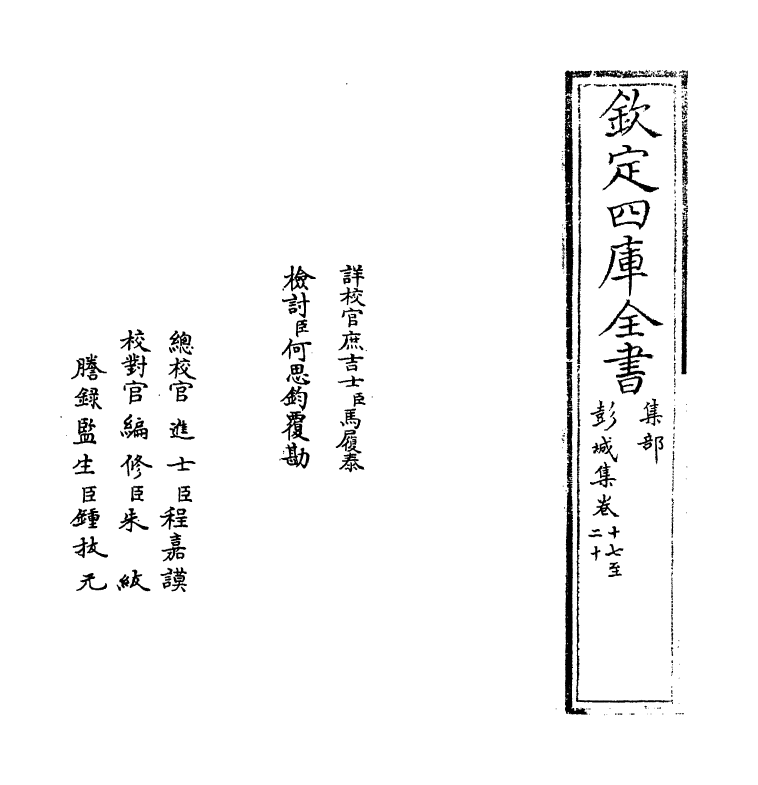 欽定四庫全書
集部
彭城集卷十七至二十
詳校官庶吉士臣馬履泰
檢討臣何思鈞覆勘
總校官進士臣程嘉謨
校對官編修臣朱紱
謄錄監生臣鍾技元